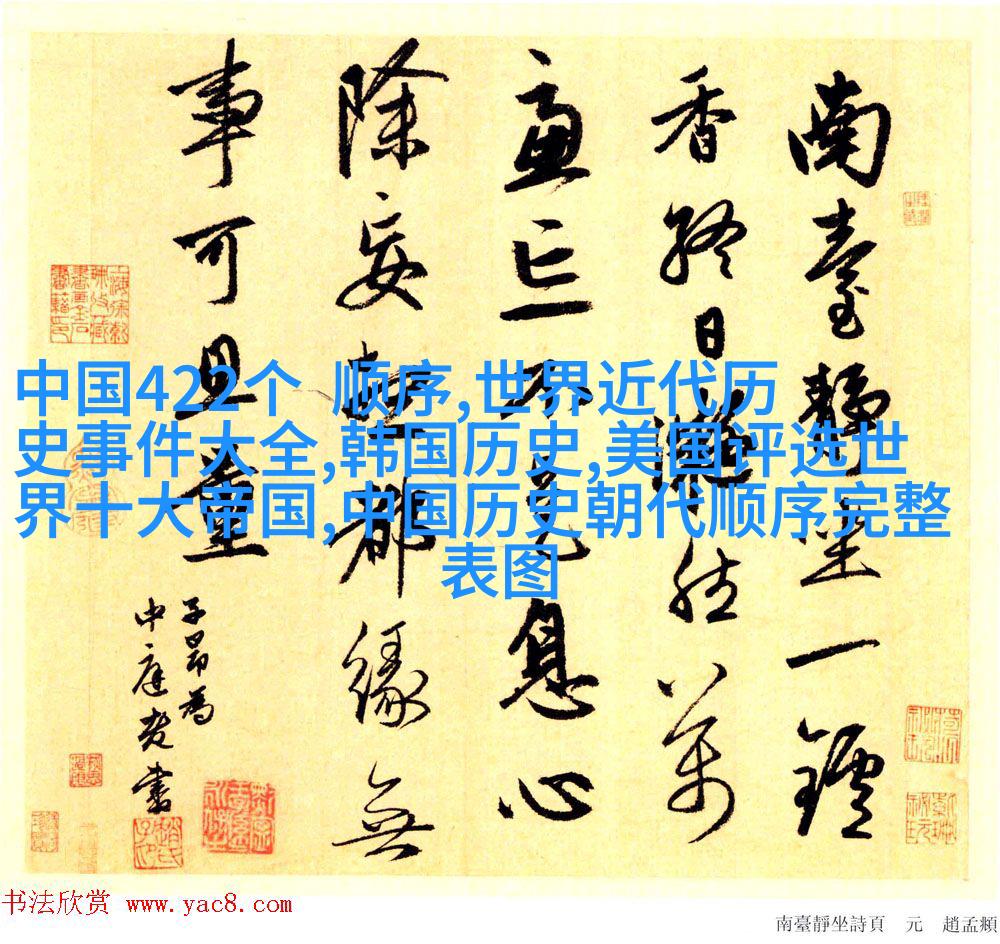 南臺靜坐一鑪
香終日凝然萬
慮亡不是息心
除妄想都緣無
事可思量
子昂為
中庭老書
中国422个 顺序,世界近代历
史事件大全,韩国历史,美国评选世
界十大帝国,中国历史朝代顺序完整
表图
书法欣赏 www.yac8.com
南臺靜坐詩頁 元 趙孟頫